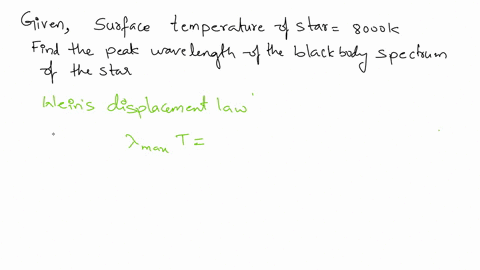 Given, Surface temperature of star = 8000k
Find the peak wavelength of the blackbody spectrum
of the star
Wein's displacement law
λmax T =